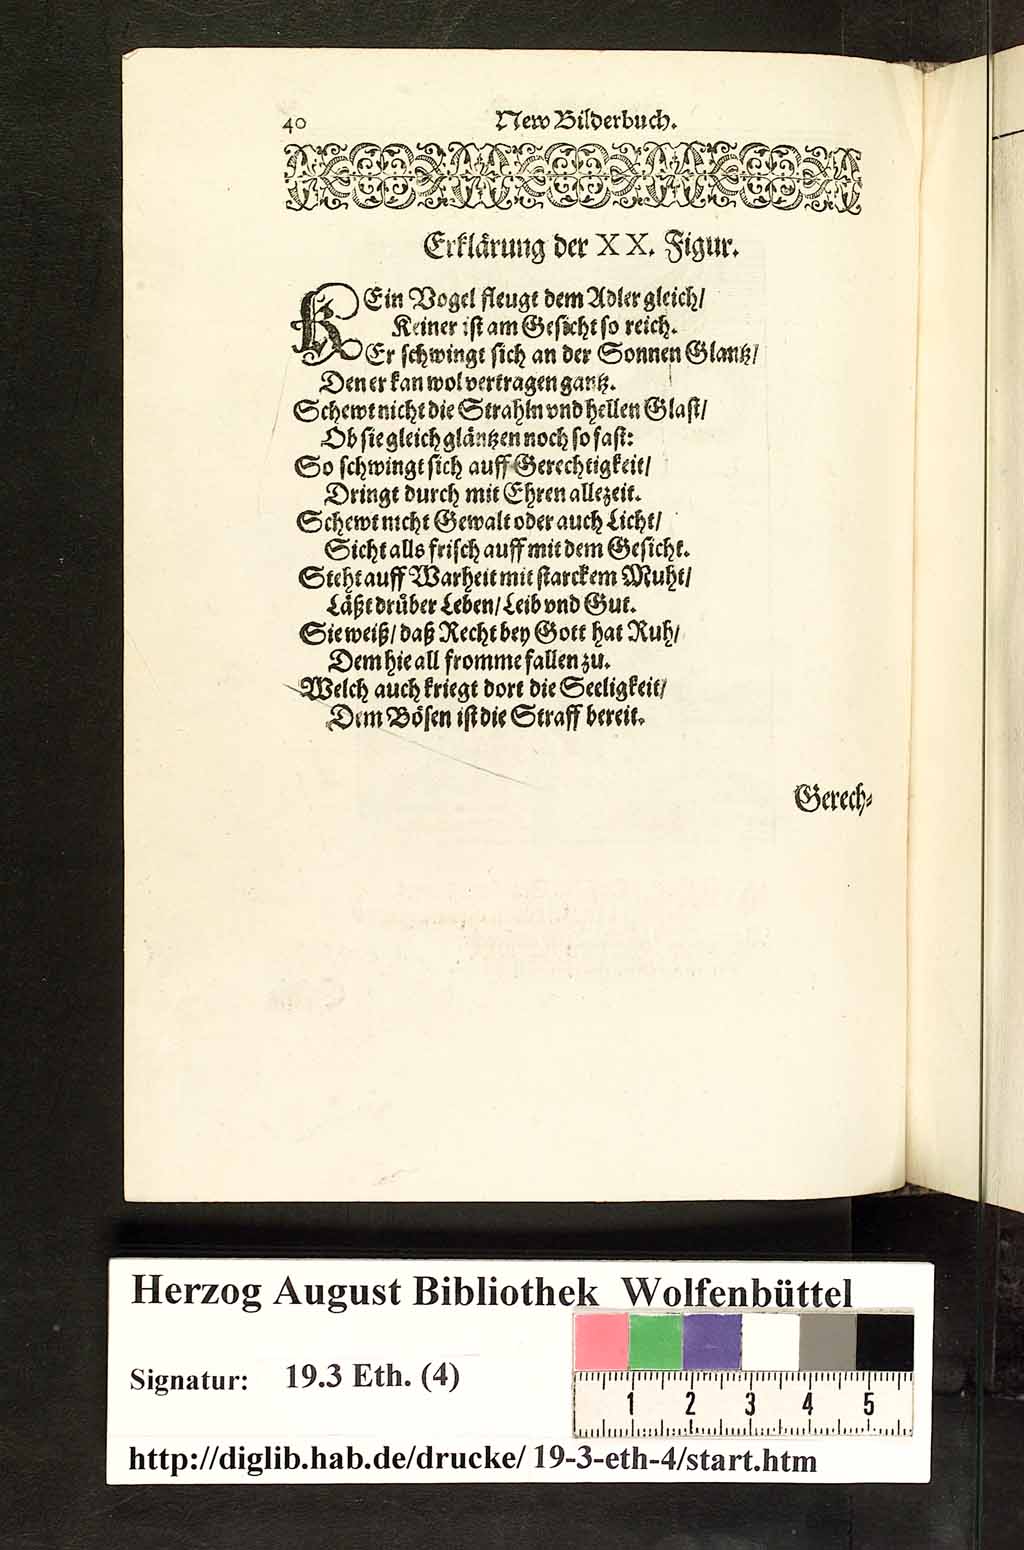 40 New Bilderbuch.
Erklärung der XX. Figur.
KEin Vogel fleugt dem Adler gleich/
Keiner ist am Gesicht so reich.
Er schwingt sich an der Sonnen Glantz/
Den er kan wol vertragen gantz.
Schewt nicht die Strahln vnd hellen Glast/
Ob sie gleich gläntzen noch so fast:
So schwingt sich auff Gerechtigkeit/
Dringt durch mit Ehren allezeit.
Schewt nicht Gewalt oder auch Licht/
Sicht alls frisch auff mit dem Gesicht.
Steht auff Warheit mit starckem Muht/
Läßt drüber Leben/ Leib vnd Gut.
Sie weiß/ daß Recht bey Gott hat Ruh/
Dem hie all fromme fallen zu.
Welch auch kriegt dort die Seeligkeit/
Dem Bösen ist die Straff bereit.
Gerech⸗
Herzog August Bibliothek Wolfenbüttel
Signatur: 19.3 Eth. (4)
1 2 3 4 5
http://diglib.hab.de/drucke/ 19-3-eth-4/start.htm